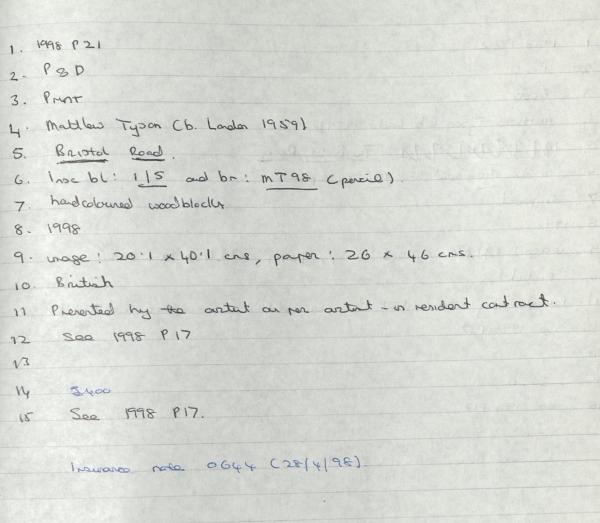 1. 1998 P21
2. P & D
3. Print
4. Matthew Tyson (b. London 1959)
5. Bristol Road.
6. Insc bl: 1/5 and br: MT98 (pencil).
7. handcoloured woodblocks
8. 1998
9. image: 20.1 x 40.1 cms, paper: 26 x 46 cms.
10. British
11 Presented by the artist as per artist-in resident contract.
12 See 1998 P17
13
14 £400
15 See 1998 P17.
Insurance note 0644 (28/4/98).